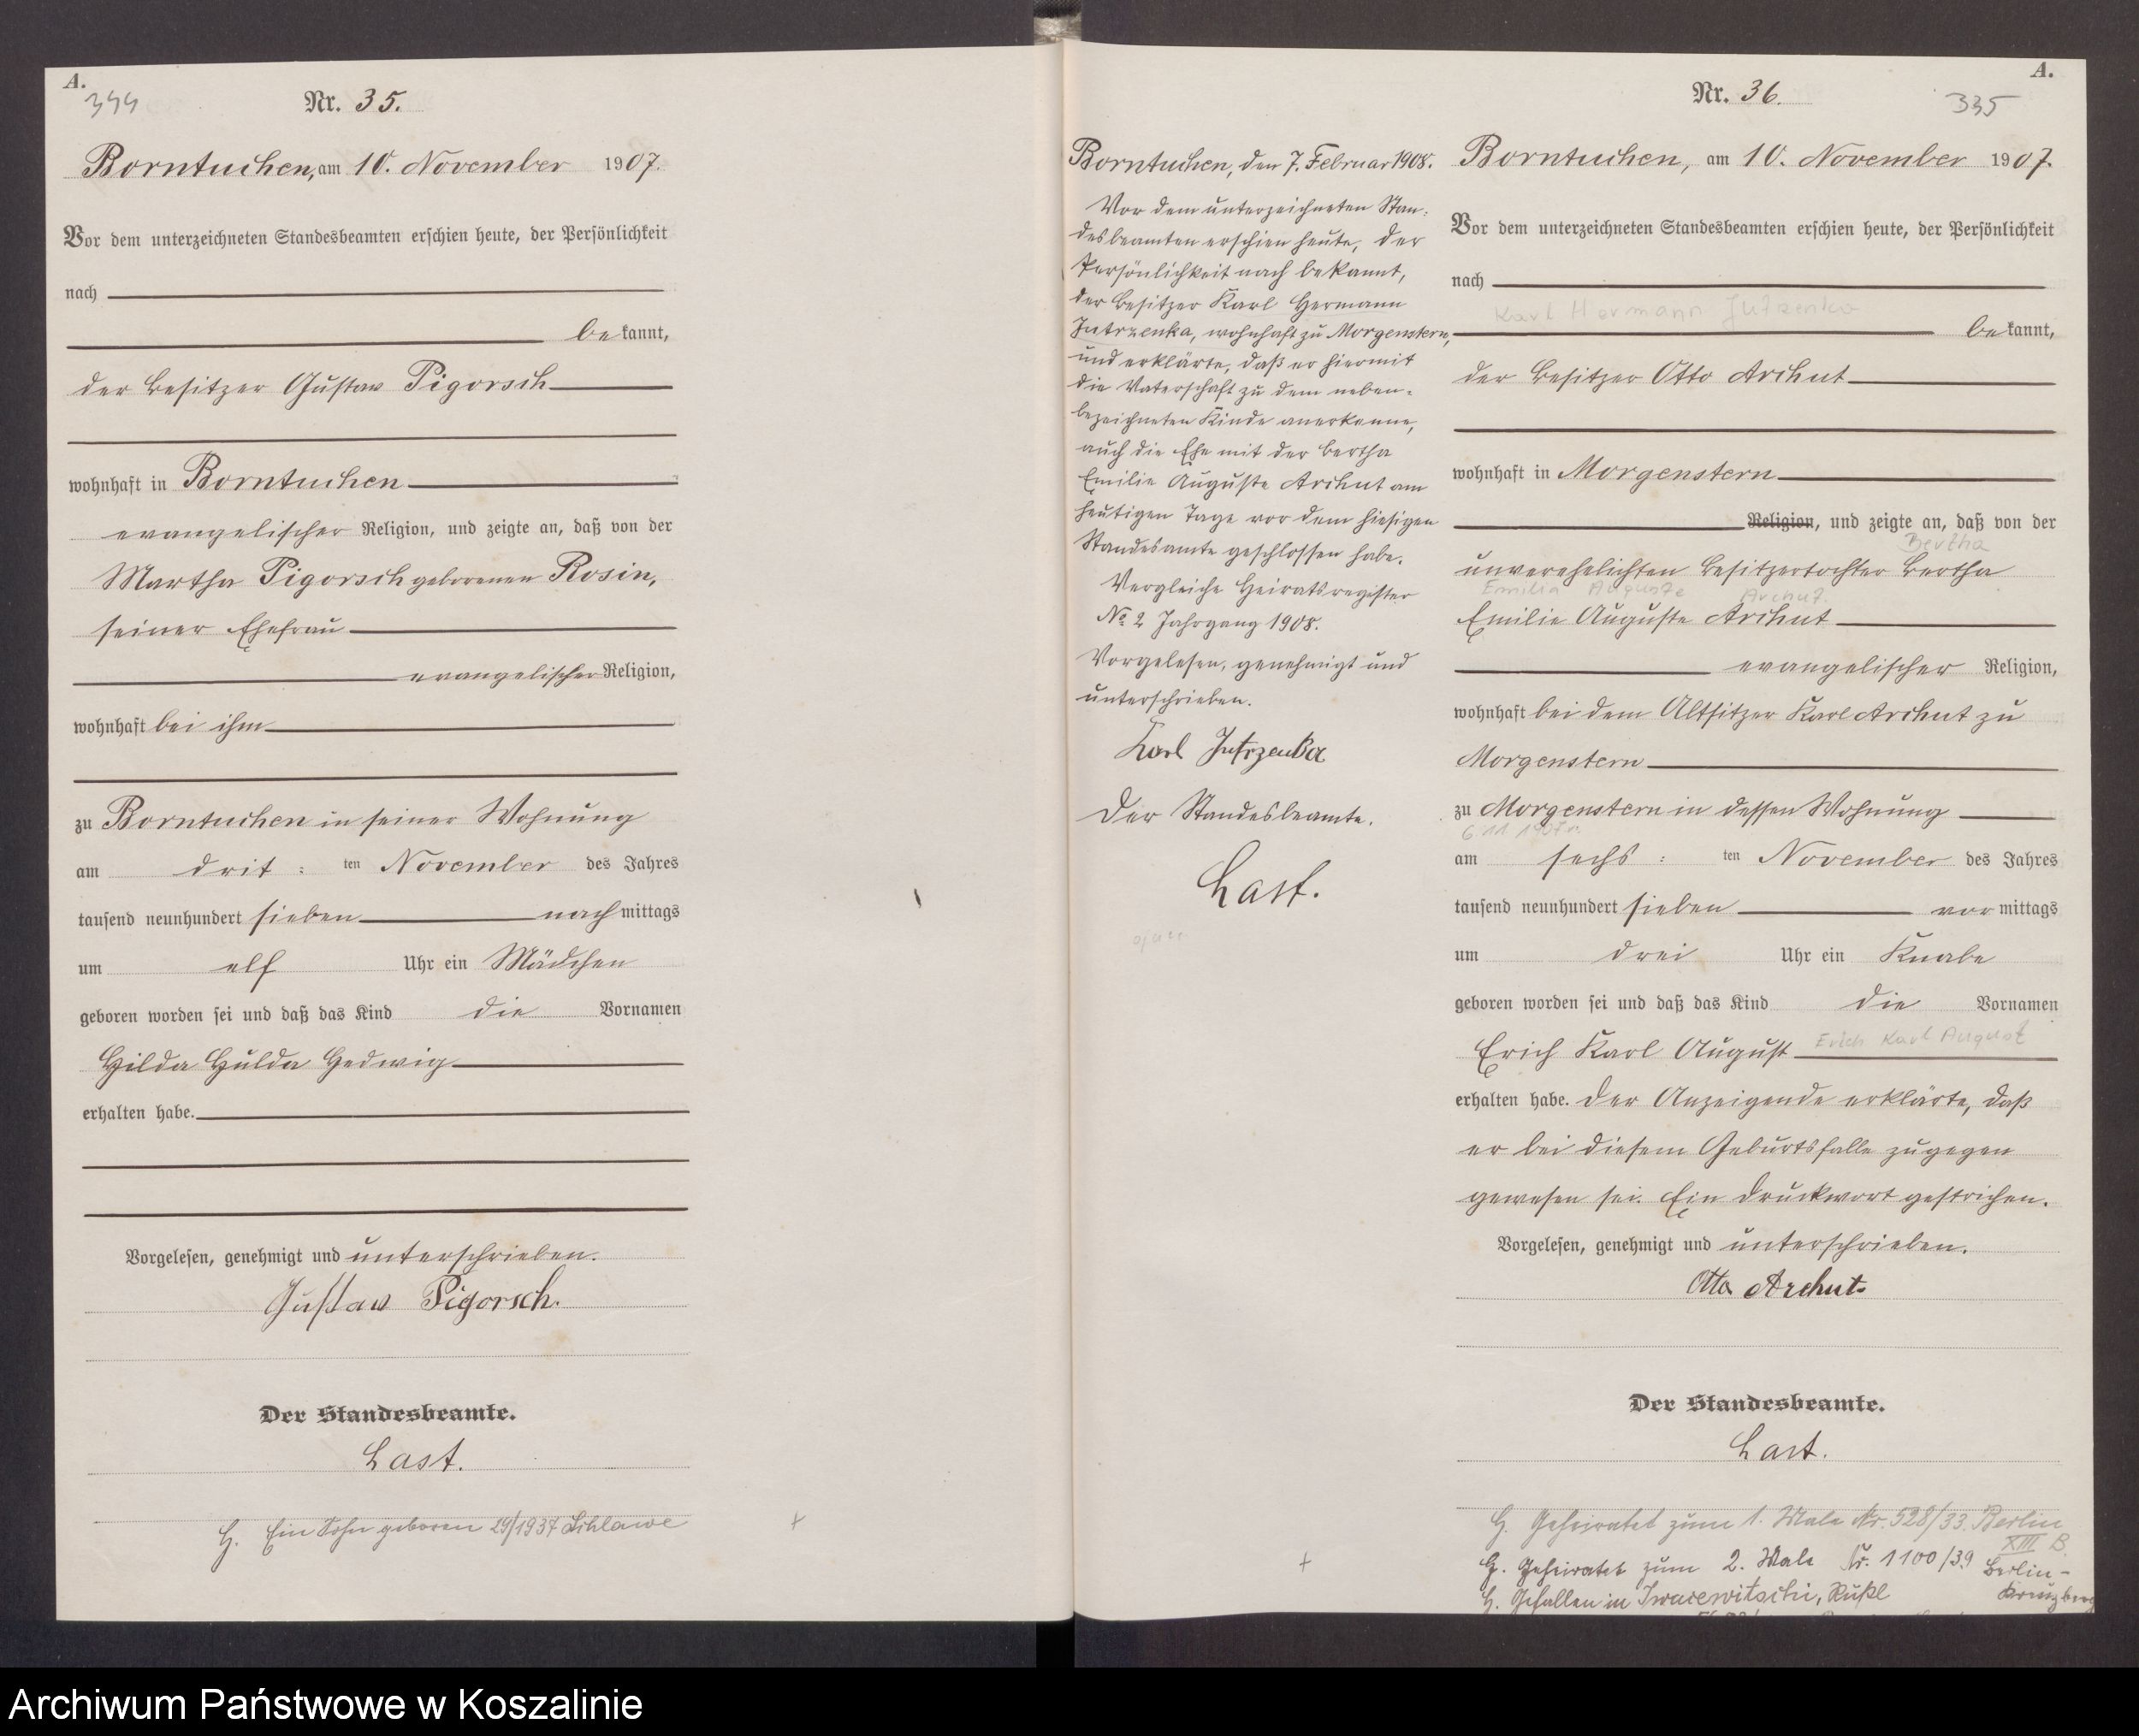 A.
344
Nr. 35.
Borntuchen, am 10. November 1907.
Vor dem unterzeichneten Standesbeamten erschien heute, der Persönlichkeit
nach
bekannt,
der Besitzer Gustav Pigorsch
wohnhaft in Borntuchen
evangelischer Religion, und zeigte an, daß von der
Martha Pigorsch geborenen Rosin,
seiner Ehefrau
evangelischer Religion,
wohnhaft bei ihm
zu Borntuchen in seiner Wohnung
am drit: ten November des Jahres
tausend neunhundert sieben nachmittags
um elf Uhr ein Mädchen
geboren worden sei und daß das Kind die Vornamen
Hilda Hulda Hedwig
erhalten habe.
Vorgelesen, genehmigt und unterschrieben.
Gustav Pigorsch.
Der Standesbeamte.
Last.
H. Ein Sohn geboren 29/1937 Schlawe
Borntuchen, den 7. Februar 1908.
Vor dem unterzeichneten Stan:
desbeamten erschien heute, der
Persönlichkeit nach bekannt,
der Besitzer Karl Hermann
Jutrzenka, wohnhaft zu Morgenstern,
und erklärte, daß er hiermit
die Vaterschaft zu dem neben-
bezeichneten Kinde anerkenne,
auch die Ehe mit der Bertha
Emilie Auguste Archut am
heutigen Tage vor dem hiesigen
Standesamte geschlossen habe.
Vergleiche Heiratsregister
No 2 Jahrgang 1908.
Vorgelesen, genehmigt und
unterschrieben.
Karl Jutrzenka
Der Standesbeamte.
Last.
A.
335
Nr. 36.
Borntuchen, am 10. November 1907.
Vor dem unterzeichneten Standesbeamten erschien heute, der Persönlichkeit
nach
Karl Hermann Jutrzenka
bekannt,
der Besitzer Otto Archut
wohnhaft in Morgenstern
Religion, und zeigte an, daß von der
Bertha
unverehelichten Besitzertochter Bertha
Emilia Auguste Archut.
Emilie Auguste Archut
evangelischer Religion,
wohnhaft bei dem Altsitzer Karl Archut zu
Morgenstern
zu Morgenstern in dessen Wohnung
6 11 1907 r.
am sechs: ten November des Jahres
tausend neunhundert sieben vormittags
um drei Uhr ein Knabe
geboren worden sei und daß das Kind die Vornamen
Erich Karl August Erich Karl August
erhalten habe. Der Anzeigende erklärte, daß
er bei diesem Geburtsfalle zugegen
gewesen sei. Ein Druckwort gestrichen.
Vorgelesen, genehmigt und unterschrieben.
Otto Archut
Der Standesbeamte.
Last.
H. Geheiratet zum 1. Male Nr. 528/33. Berlin
XIII B.
H. Geheiratet zum 2. Male Nr. 1100/39 Berlin-
Kreuzberg
H. Gefallen in Iwacewitschi, Rußl
Archiwum Państwowe w Koszalinie